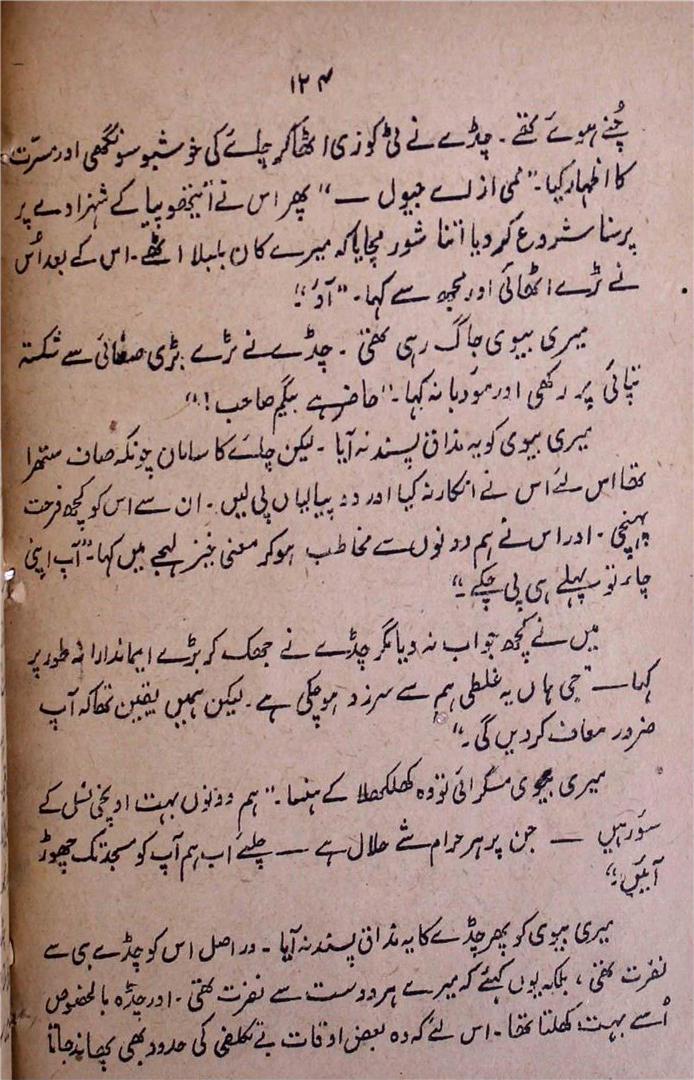 ۱۲۴
چُنے ہوئے تھے۔ چڈے نے ٹی کوزی اٹھا کر چائے کی خوشبو سونگھی اور مسرّت
کا اظہار کیا۔ "ممی از اے جیول —" پھر اس نے ایتھوپیا کے شہزادے پر
برسنا شروع کر دیا اتنا شور مچایا کہ میرے کان بلبلا اٹھے۔ اس کے بعد اُس
نے ٹرے اٹھائی اور مجھ سے کہا۔ "آؤ"۔
میری بیوی جاگ رہی تھی۔ چڈے نے ٹرے بڑی صفائی سے شکستہ
تپائی پر رکھی اور مودبانہ کہا۔ "حاضر ہے بیگم صاحب!"
میری بیوی کو یہ مذاق پسند نہ آیا۔ لیکن چائے کا سامان چونکہ صاف ستھرا
تھا اس لئے اس نے انکار نہ کیا اور دو پیالیاں پی لیں۔ ان سے اس کو کچھ فرحت
پہنچی۔ اور اس نے ہم دونوں سے مخاطب ہو کر معنی خیز لہجے میں کہا۔ "آپ اپنی
چائے تو پہلے ہی پی چکے۔"
میں نے کچھ جواب نہ دیا مگر چڈے نے جھک کر بڑے ایماندارانہ طور پر
کہا — "جی ہاں یہ غلطی ہم سے سرزد ہو چکی ہے۔ لیکن ہمیں یقین تھا کہ آپ
ضرور معاف کر دیں گی۔"
میری بیوی مسکرائی تو وہ کھلکھلا کے ہنسا۔ "ہم دونوں بہت اونچی نسل کے
سؤر ہیں — جن پر ہر حرام شے حلال ہے — چلئے اب ہم آپ کو مسجد تک چھوڑ
آئیں۔"
میری بیوی کو پھر چڈے کا یہ مذاق پسند نہ آیا۔ دراصل اس کو چڈے ہی سے
نفرت تھی، بلکہ یوں کہئے کہ میرے ہر دوست سے نفرت تھی۔ اور چڈہ بالخصوص
اُسے بہت کھلتا تھا۔ اس لئے کہ وہ بعض اوقات بے تکلفی کی حدود بھی پھاند جاتا